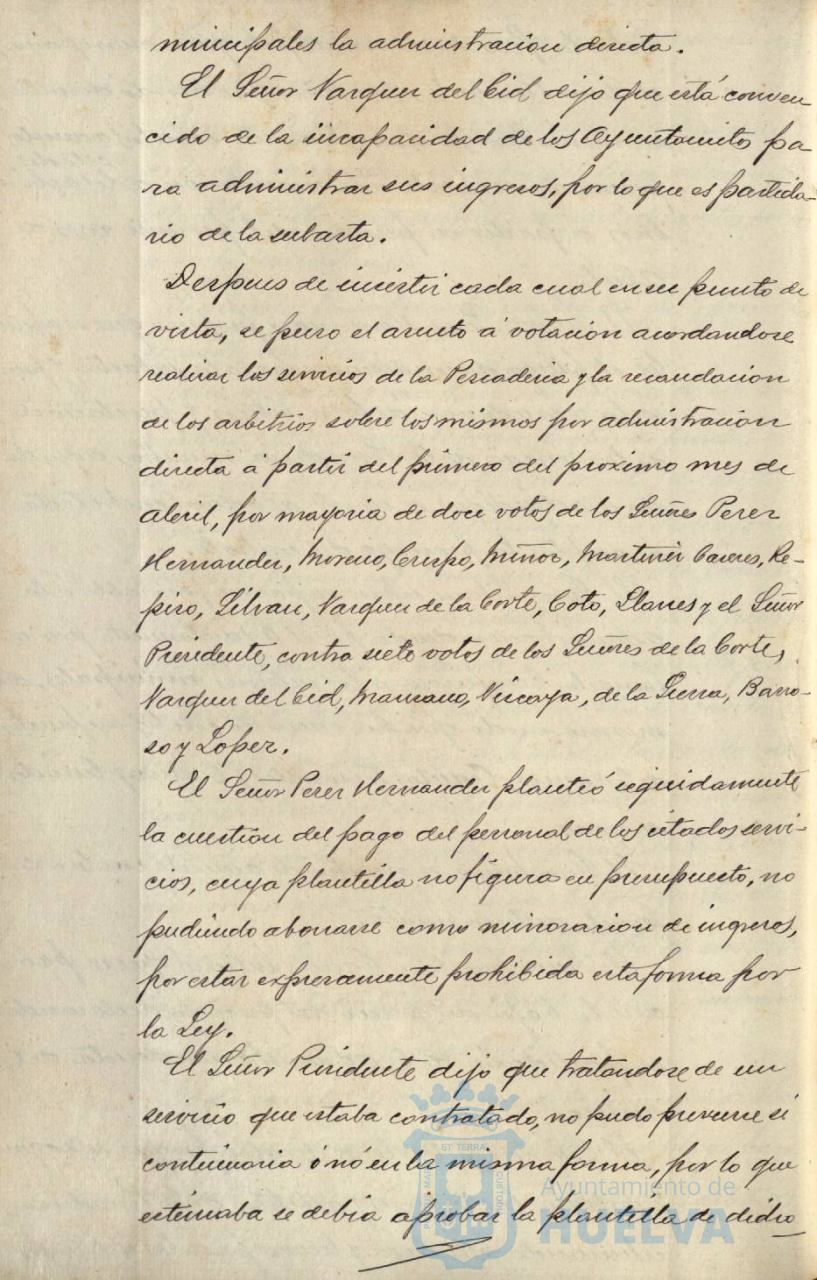 municipales la administracion directa.
El Señor Vazquez del Cid dijo que está conven
cido de la incapacidad de los Ayuntamitos pa-
ra administrar sus ingresos, por lo que es partida-
rio de la subasta.
Despues de insistir cada cual en su punto de
vista, se puso el asunto á votacion acordandose
realizar los servicios de la Pescaderia y la recaudacion
de los arbitrios sobre los mismos por administracion
directa á partir del primero del proximo mes de
abril, por mayoria de doce votos de los Señores Perez
Hernandez, Moreno, Crespo, Muñoz, Martinez Caceres, Re-
piso, Silvan, Vazquez de la Corte, Coto, Llanes y el Señor
Presidente, contra siete votos de los Señores de la Corte,
Vazquez del Cid, Manzano, Vizcaya, de la Sierra, Barro-
so y Lopez.
El Señor Perez Hernandez planteó seguidamente
la cuestion del pago del personal de los citados servi-
cios, cuya plantilla no figura en presupuesto, no
pudiendo abonarse como minoracion de ingresos,
por estar expresamente prohibida esta forma por
la Ley.
El Señor Presidente dijo que tratandose de un
servicio que estaba contratado, no pudo preverse si
continuaria ó nó en la misma forma, por lo que
estimaba se debia aprobar la plantilla de dicho
ET TERRA
Ayuntamiento de
HUELVA